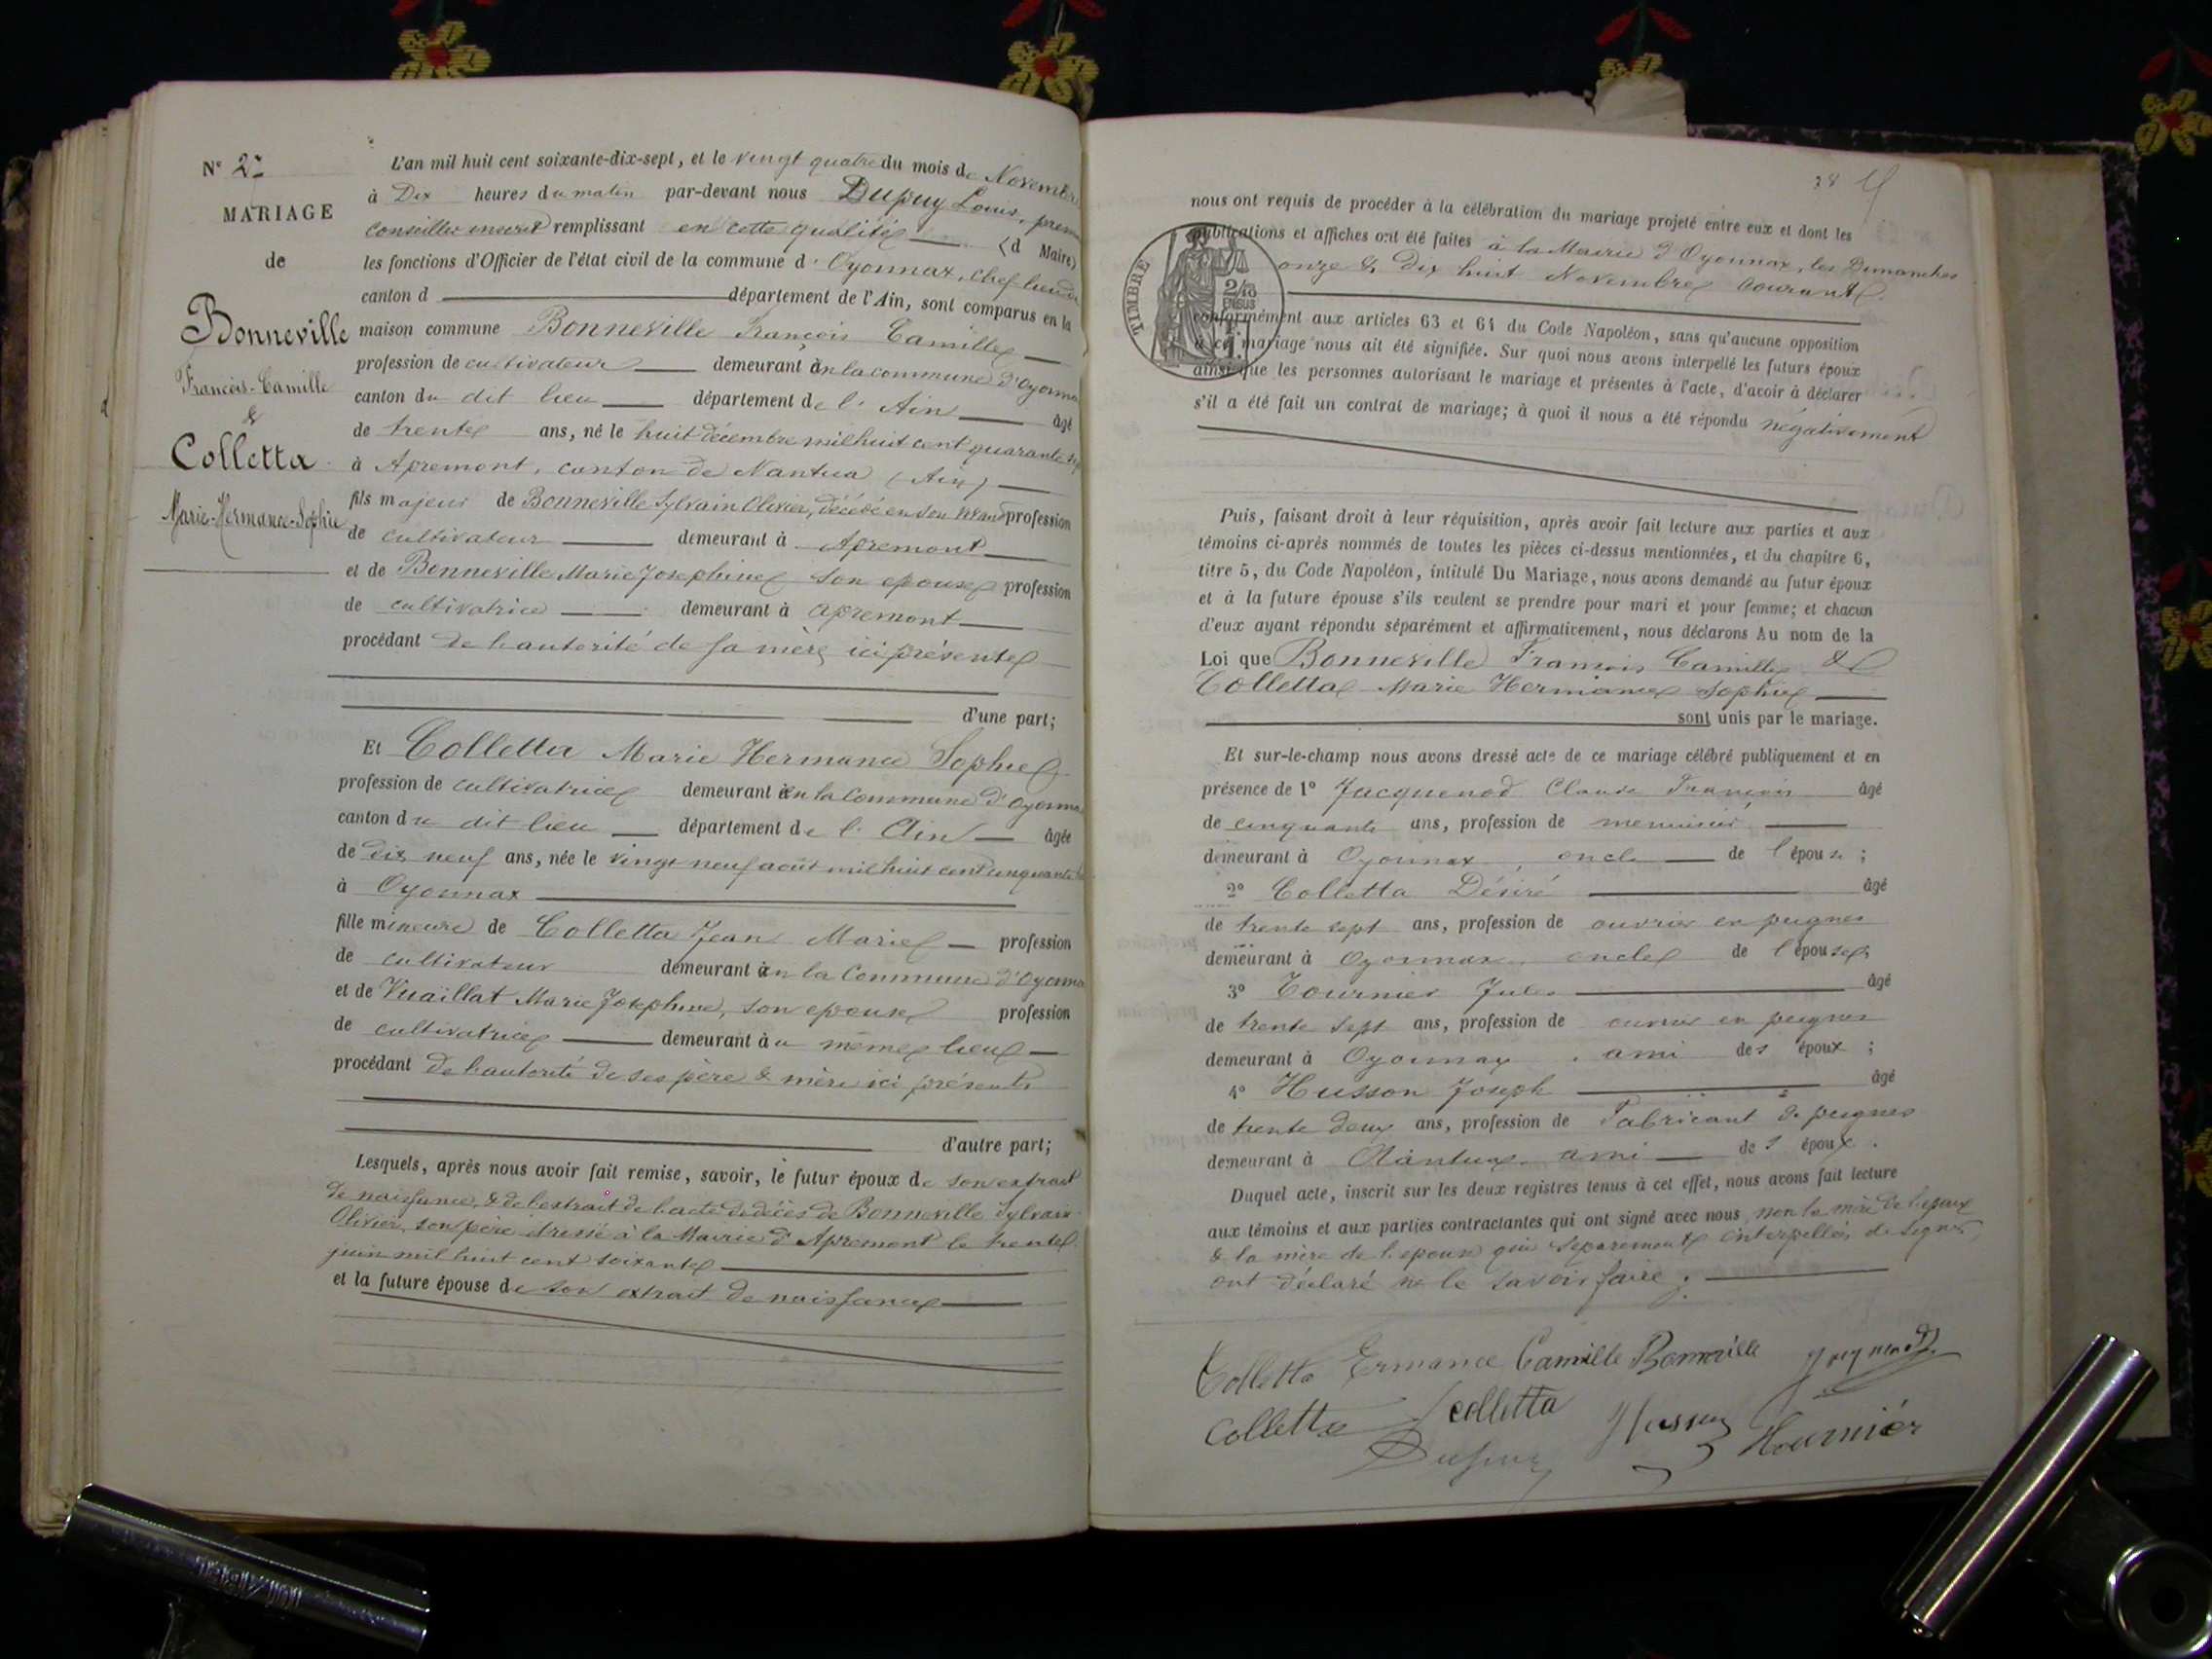 N° 2
MARIAGE
de
Bonneville
François-Camille
&
Colletta
Marie-Hermance-Sophie
L'an mil huit cent soixante-dix-sept, et le vingt quatre du mois de Novembre
à Dix heures du matin par-devant nous Dupuy Louis, prem
conseiller inscrit remplissant en cette qualité (d Maire)
les fonctions d'Officier de l'état civil de la commune d'Oyonnax, chef lieu de
canton d département de l'Ain, sont comparus en la
maison commune Bonneville François Camille
profession de cultivateur demeurant en la commune d'Oyonna
canton du dit lieu département de l'Ain âgé
de trente ans, né le huit décembre mil huit cent quarante
à Apremont, canton de Nantua (Ain)
fils majeur de Bonneville Sylvain Olivier, décédé en son vivant profession
de cultivateur demeurant à Apremont
et de Bonneville Marie Josephine son epouse profession
de cultivatrice demeurant à apremont
procédant de l'autorité de sa mère ici présente
d'une part;
Et Colletta Marie Hermance Sophie
profession de cultivatrice demeurant en la Commune d'Oyonna
canton du dit lieu département de l'Ain âgée
de dix neuf ans, née le vingt neuf août mil huit cent cinquante
à Oyonnax
fille mineure de Colletta Jean Marie profession
de cultivateur demeurant en la Commune d'Oyonna
et de Vuaillat Marie Josephine, son epouse profession
de cultivatrice demeurant au même lieu
procédant de l'autorité de ses père & mère ici présents
d'autre part;
Lesquels, après nous avoir fait remise, savoir, le futur époux de son extrait
de naissance, & de l'extrait de l'acte de décès de Bonneville Sylvain
Olivier, son père dressé à la Mairie d'Apremont le trente
juin mil huit cent soixante
et la future épouse de son extrait de naissance
28
nous ont requis de procéder à la célébration du mariage projeté entre eux et dont les
publications et affiches ont été faites à la Mairie d'Oyonnax, les Dimanches
onze & Dix huit Novembre courant
TIMBRE
2/10
EN SUS
conformément aux articles 63 et 64 du Code Napoléon, sans qu'aucune opposition
à ce mariage nous ait été signifiée. Sur quoi nous avons interpellé les futurs époux
ainsi que les personnes autorisant le mariage et présentes à l'acte, d'avoir à déclarer
s'il a été fait un contrat de mariage; à quoi il nous a été répondu négativement
Puis, faisant droit à leur réquisition, après avoir fait lecture aux parties et aux
témoins ci-après nommés de toutes les pièces ci-dessus mentionnées, et du chapitre 6,
titre 5, du Code Napoléon, intitulé Du Mariage, nous avons demandé au futur époux
et à la future épouse s'ils veulent se prendre pour mari et pour femme; et chacun
d'eux ayant répondu séparément et affirmativement, nous déclarons Au nom de la
Loi que Bonneville François Camille &
Colletta Marie Hermance Sophie
sont unis par le mariage.
Et sur-le-champ nous avons dressé acte de ce mariage célébré publiquement et en
présence de 1° Jacquenod Claude François âgé
de cinquante ans, profession de menuisier
demeurant à Oyonnax, oncle de l'épouse;
2° Colletta Désiré âgé
de trente sept ans, profession de ouvrier en peignes
demeurant à Oyonnax. oncle de l'épouse;
3° Tournier Jules âgé
de trente sept ans, profession de ouvrier en peignes
demeurant à Oyonnax. ami des époux;
4° Husson Joseph âgé
de trente deux ans, profession de Fabricant de peignes
demeurant à Nantua. ami des époux.
Duquel acte, inscrit sur les deux registres tenus à cet effet, nous avons fait lecture
aux témoins et aux parties contractantes qui ont signé avec nous non la mère de l'époux
& la mère de l'epouse qui séparement interpellées de signer
ont déclaré ne le savoir faire.
Colletta Ermance Camille Bonneville
Colletta colletta Husson Tournier
Dupuy